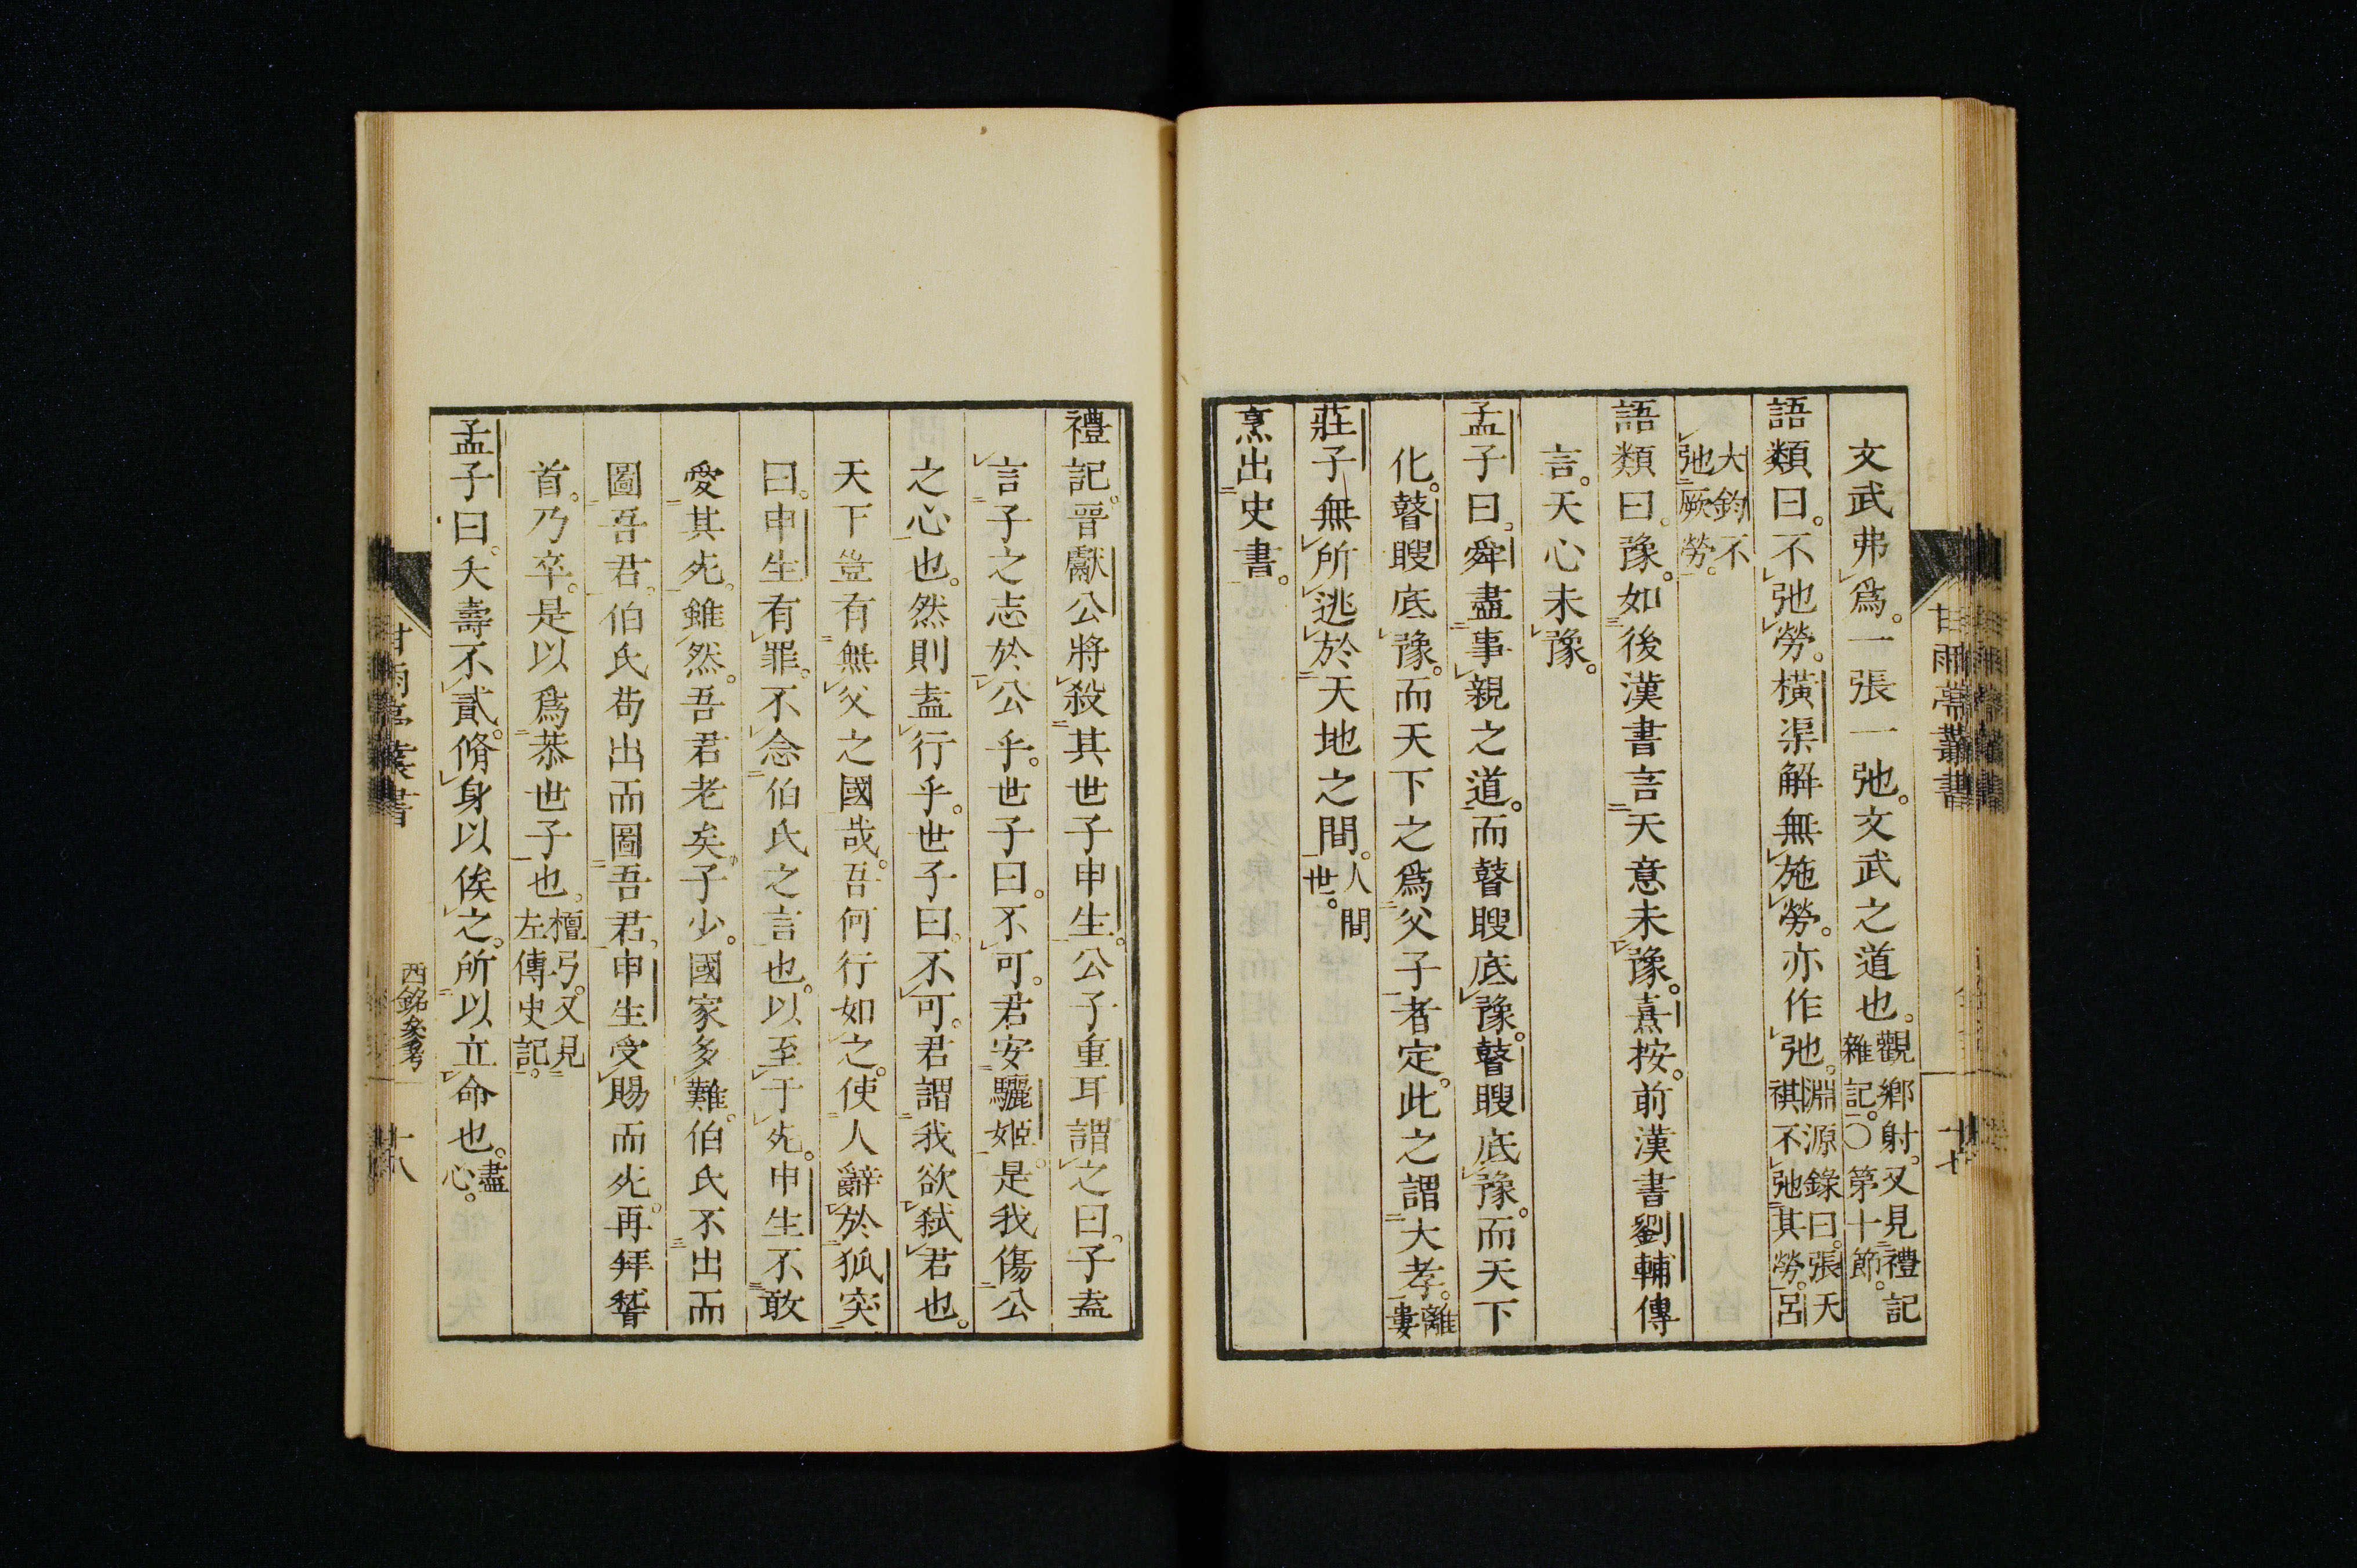 文武弗爲。一張一弛。文武之道也。觀鄉射。又見禮記雜記。〇第十節。
語類曰。不弛勞。橫渠解無施勞。亦作弛。淵源錄曰。張天祺不弛其勞。呂
大鈞不弛厥勞。
語類曰。豫。如後漢書言天意未豫。熹按。前漢書劉輔傳
言。天心未豫。
孟子曰。舜盡事親之道。而瞽瞍底豫。瞽瞍底豫。而天下
化。瞽瞍底豫。而天下之爲父子者定。此之謂大孝。離婁
莊子無所逃於天地之間。人間世。
烹出史書。
甘雨亭叢書
十七
禮記。晉獻公將殺其世子申生。公子重耳謂之曰。子盍
言子之志於公乎。世子曰。不可。君安驪姬。是我傷公
之心也。然則盍行乎。世子曰。不可。君謂我欲弑君也。
天下豈有無父之國哉。吾何行如之。使人辭於狐突
曰。申生有罪。不念伯氏之言也。以至于死。申生不敢
愛其死。雖然。吾君老矣。子少。國家多難。伯氏不出而
圖吾君。伯氏苟出而圖吾君。申生受賜而死。再拜稽
首。乃卒。是以爲恭世子也。檀弓。又見左傳史記。
孟子曰。夭壽不貳。脩身以俟之。所以立命也。盡心。
西銘參考
十八